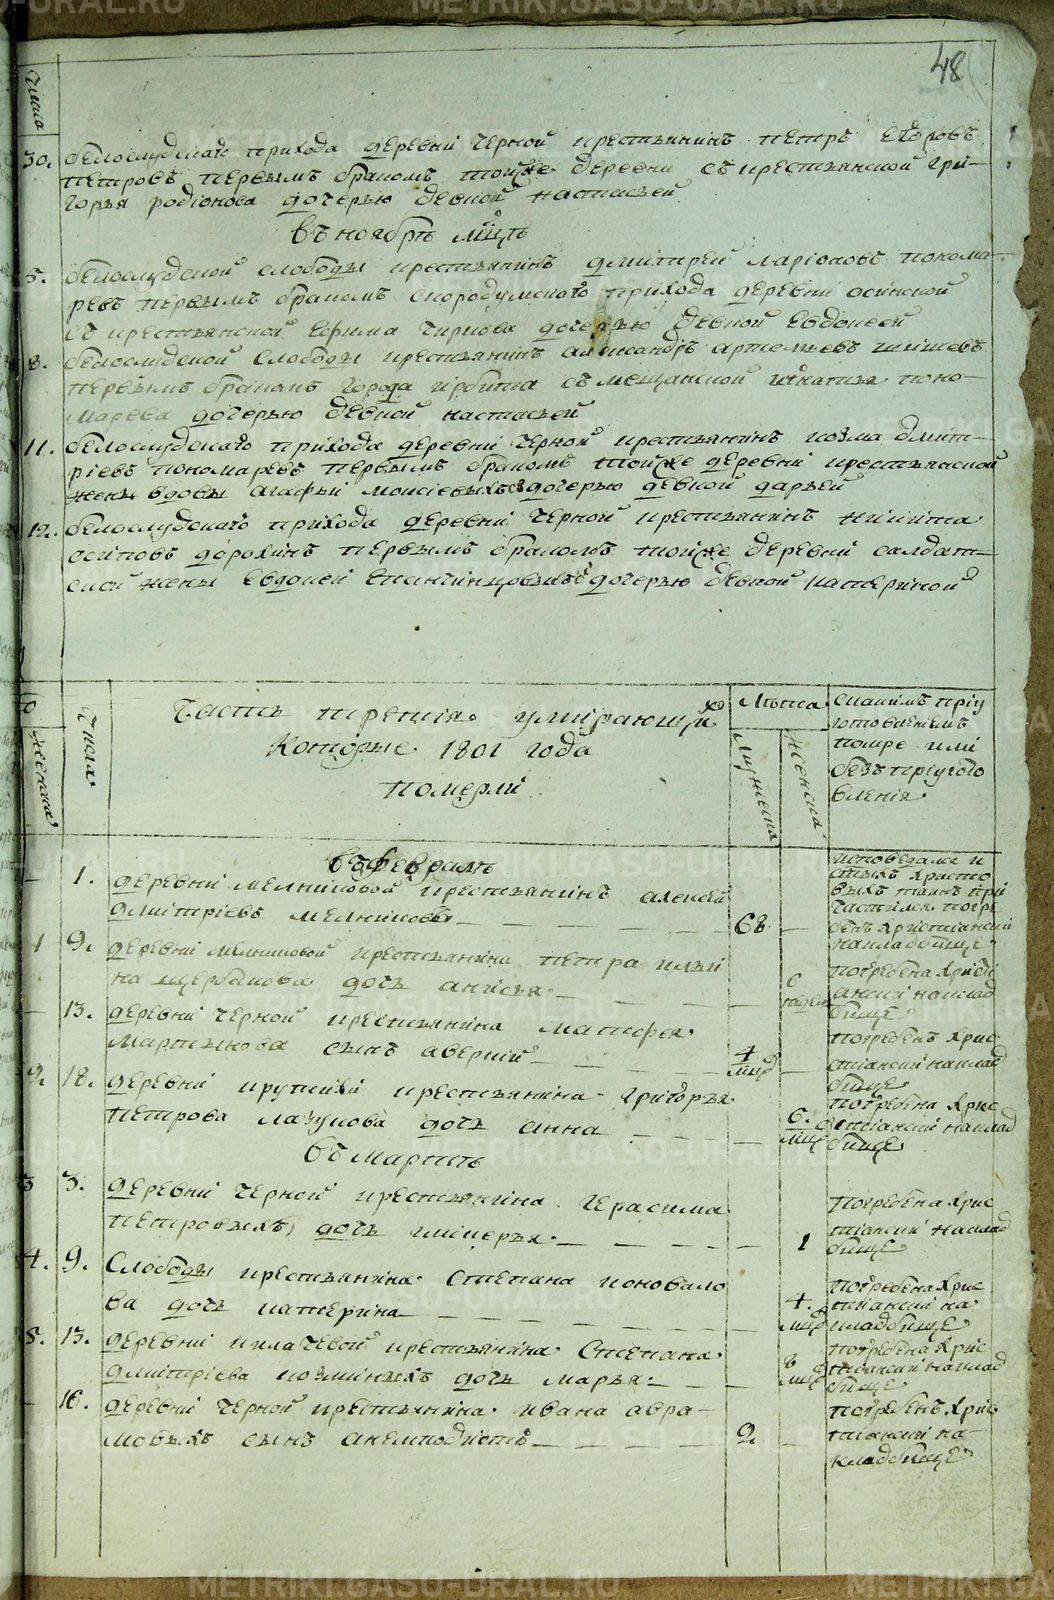 48
Числа
30. белослуцкаго прихода деревни черной крестьянинъ петръ егоровъ
петровъ первымъ бракомъ тойже деревни съ крестьянской гри-
горья родионова дочерью девкой настасьей
въ ноябрѣ мцѣ
5. белослуцкой слободы крестьянинъ дмитрей ларионовъ понома-
ревъ первымъ бракомъ скородумскаго прихода деревни осинской
съ крестьянской ефима чиркова дочерью девкой евдокеей
8. белослуцкой слободы крестьянинъ александръ артемьевъ шишевъ
первымъ бракомъ города ирбита съ мещанской игнатья поно-
марева дочерью девкой настасьей
11. белослуцкаго прихода деревни черной крестьянинъ козма дмит-
риевъ пономаревъ первымъ бракомъ тойже деревни крестьянской
жены вдовы агафьи моисиевыхъ дочерью девкой дарьей
12. белослуцкаго прихода деревни черной крестьянинъ никита
осиповъ дорохинъ первымъ бракомъ тойже деревни салдат-
ской жены евдокеи дочерью девкой катериной
женска
Числа
Часть третия умирающихъ
Которые 1801 года
померли
Лѣта
мужеска
женска
скакимъ приу
готовлениемъ
помре или
безъ приугото
вления
въ февралѣ
1. деревни мелниковой крестьянинъ алексей
дмитриевъ мелниковъ 68
исповедаме и
стыхъ христо
выхъ таинъ при
частился погре
бенъ християнски
накладбище
1 9. деревни мелниковой крестьянина петра ильи
на щербакова дочь анисья 6 недель
погребена христи
ански наклад
бище
13. деревни черной крестьянина матфея
мартынова сынъ аверкий 4 мцъ
погребенъ хрис
тиански наклад
бище
2. 18. деревни крутихи крестьянина григорья
петрова лазукова дочь анна 6. мцъ
погребена хрис
тиански наклад
бище
въ мартѣ
3 3. деревни черной крестьянина герасима
петровыхъ дочь гликерья 1
погребена хрис
тиански наклад
бище
4. 9. Слободы крестьянина степана коновало
ва дочь катерина 4. мцъ
погребена хрис
тиански на
кладбище
5. 13. деревни килачевой крестьянина степана
дмитриева козминыхъ дочь марья мцъ
погребена хрис
тиански наклад
бище
16. деревни черной крестьянина ивана авра-
мовыхъ сынъ анемподистъ 2
погребенъ хрис
тиански на
кладбище
METRIKI.GASO-URAL.RU